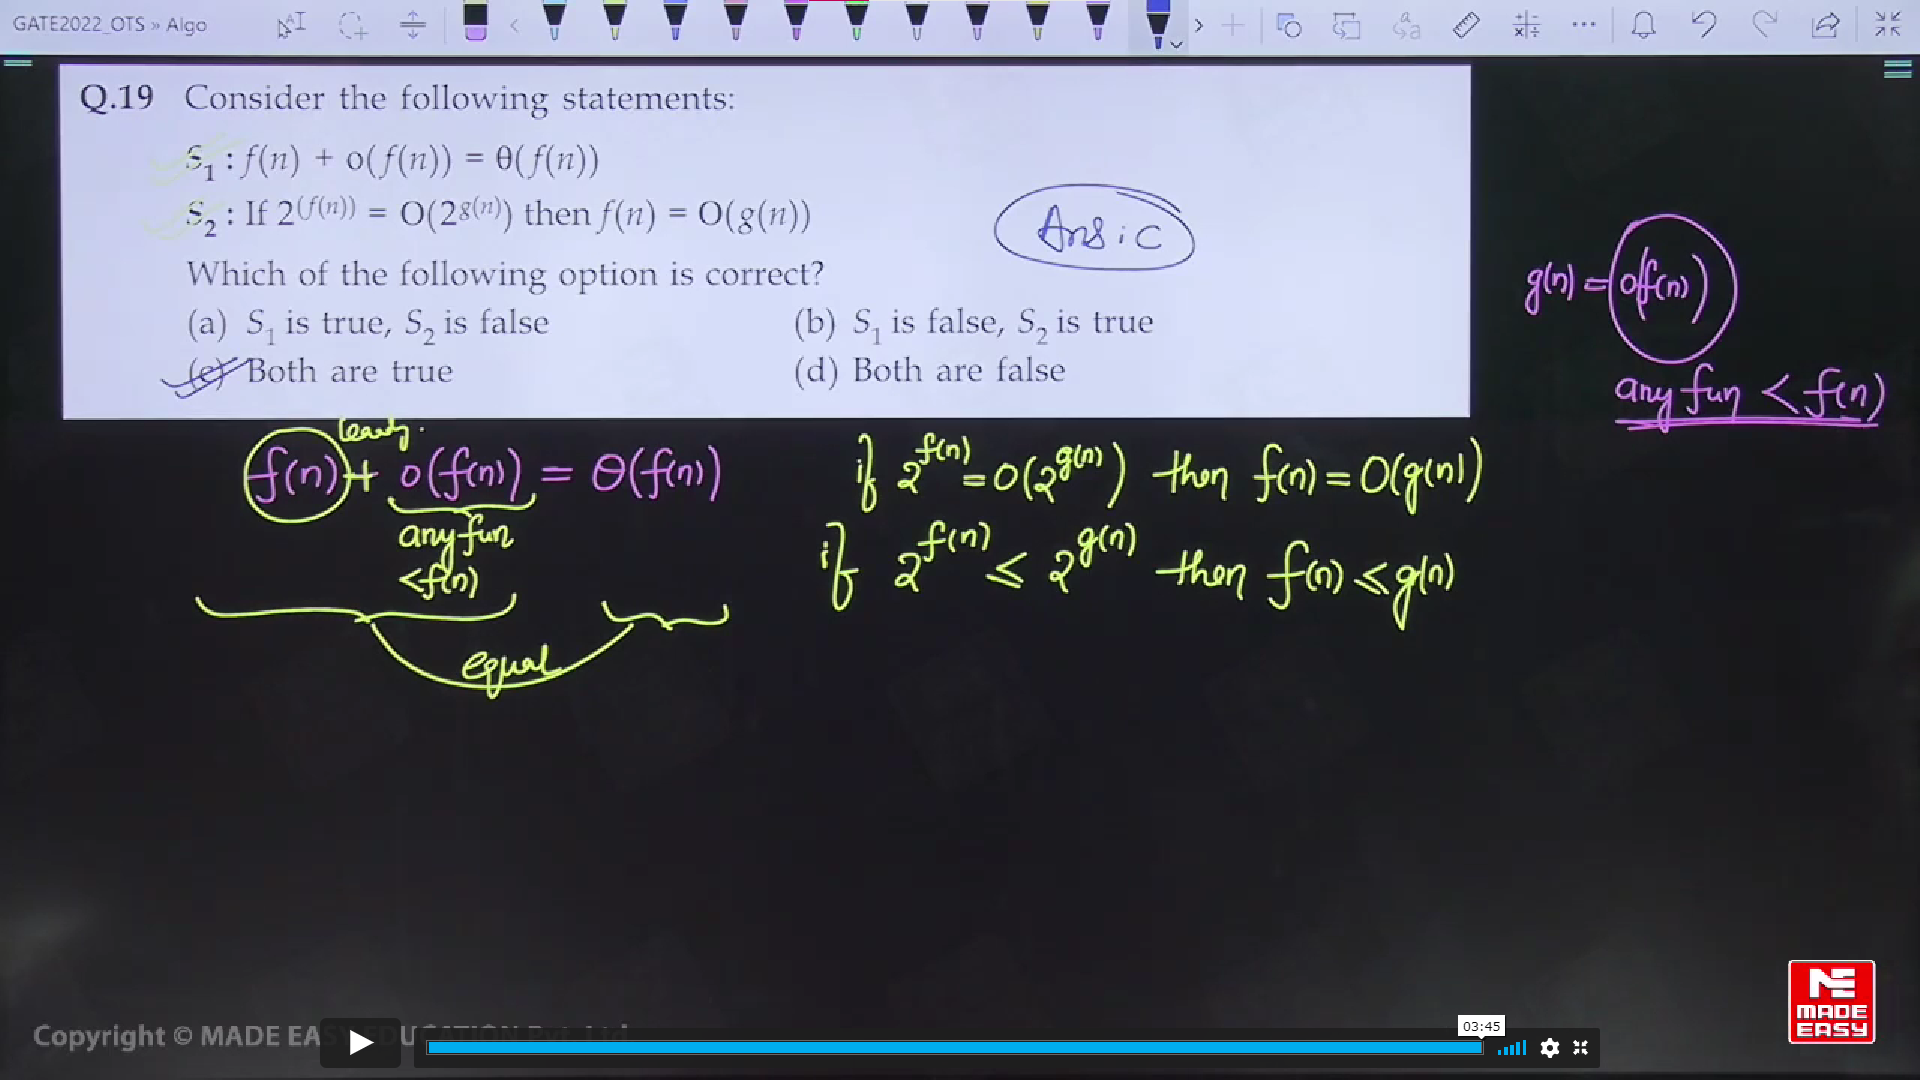 GATE2022_OTS » Algo
Q.19 Consider the following statements:
S₁ : f(n) + o(f(n)) = θ(f(n))
S₂ : If 2^(f(n)) = O(2^g(n)) then f(n) = O(g(n))
Ans: C
Which of the following option is correct?
(a) S₁ is true, S₂ is false
(b) S₁ is false, S₂ is true
(c) Both are true
(d) Both are false
g(n) = o(f(n))
any fun < f(n)
f(n) + o(f(n)) = θ(f(n))
any fun
<f(n)
equal
if 2^f(n) = O(2^g(n)) then f(n) = O(g(n))
if 2^f(n) ≤ 2^g(n) then f(n) ≤ g(n)
Copyright © MADE EASY EDUCATION Pvt. Ltd
03:45
ME
MADE
EASY